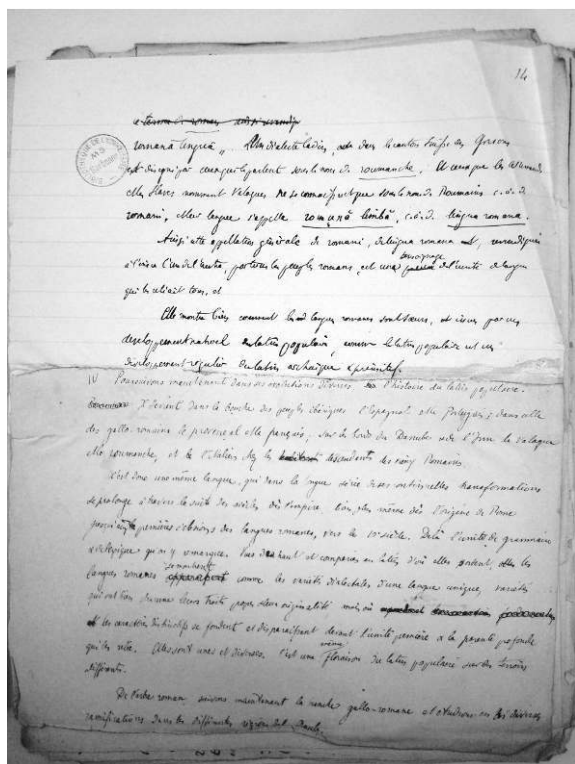 14
romană lingua „ Un dialecte ladin, celui dans le canton suisse des Grisons
est désigné par ceux qui le parlent sous le nom de roumanche. Et ceux que les Allemands
et les Slaves nomment Valaques ne se connaissent que sous le nom de Roumains c. à. d.
romani, et leur langue s'appelle romană limbă, c. à. d. lingua romana.
Ainsi cette appellation générale de romani, de lingua romana est, revendiquée
témoignage
à l'envi l'un de l'autre, par tous les peuples romans, est une de l'unité de langue
qui les reliait tous, et
Elle montre bien comment les langues romanes sont sœurs, et issues par un
développement naturel du latin populaire, comme le latin populaire est un
développement régulier du latin archaïque et primitif.
IV Poursuivons maintenant dans ses évolutions diverses l'histoire du latin populaire.
Il devient dans la bouche des peuples ibériques l'Espagnol et le Portugais; dans celle
des gallo-romains le provençal et le français; sur les bords du Danube et de l'Inn le Valaque
et le roumanche, et l'italien chez les descendants des vieux Romains.
C'est donc une même langue, qui dans la longue série de ses continuelles transformations
se prolonge à travers la suite des siècles de l'empire, bien plus même dès l'origine de Rome
jusqu'aux premières ébauches des langues romanes, vers le 10e siècle. De là l'unité de grammaire
et de lexique qu'on y remarque. Vues de haut et comparées au latin d'où elles sortent, les
langues romanes comme les variétés dialectales d'une langue unique, variétés
qui ont bien chacune leurs traits propres et leur originalité mais où
et les caractères distinctifs se fondent et disparaissent devant l'unité première et la parenté profonde
qui les relie. Elles sont unes et diverses. C'est une même floraison du latin populaire sur des terroirs
différents.
De l'arbre roman, suivons maintenant la branche gallo-romane et étudions en les diverses
ramifications dans les différentes régions de la Gaule.